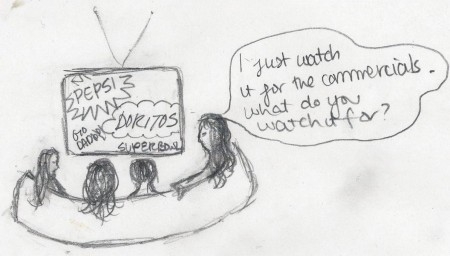 PEPSI
GO
DADDY
DORITOS
SUPERBOWL
I just watch
it for the commercials.
what do you
watch it for?